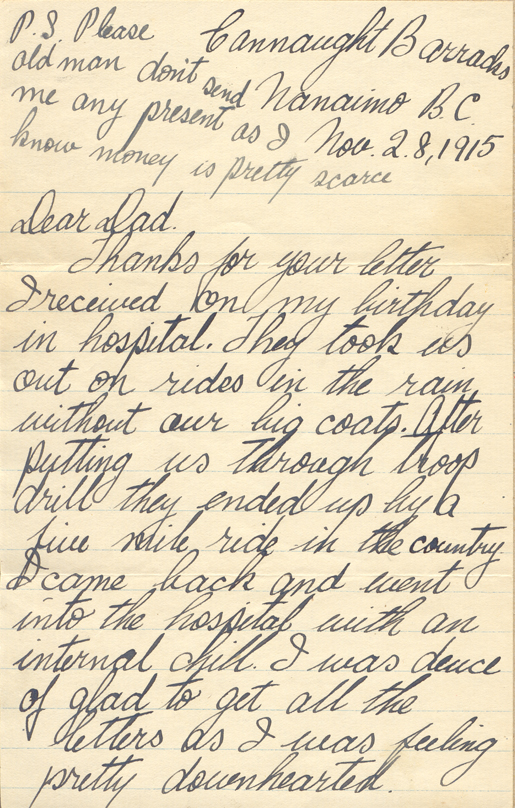 P.S. Please
old man dont send
me any present as I
know money is pretty scarce
Cannaught Barracks
Nanaimo B.C.
Nov. 28, 1915
Dear Dad.
Thanks for your letter
I received on my birthday
in hospital. They took us
out on rides in the rain
without our big coats. After
putting us through troop
drill they ended up by a
five mile ride in the country
I came back and went
into the hospital with an
internal chill. I was deuce
of glad to get all the
letters as I was feeling
pretty downhearted.